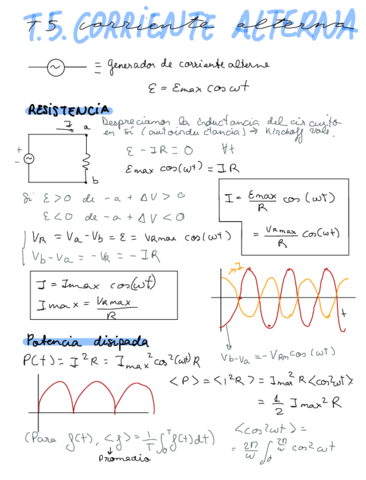 T.5. CORRIENTE ALTERNA
T.5. corriente alterna
= generador de corriente alterna
ε = εmax cos ωt
RESISTENCIA
Despreciamos la inductancia del circuito
en sí (autoinductancia) → Kirchoff vale.
I a
+
-
b
ε - IR = 0 ∀t
εmax cos(ωt) = IR
Si ε > 0 de - a + ΔV > 0
ε < 0 de - a + ΔV < 0
I = εmax/R cos (ωt)
= VRmax/R cos(ωt)
VR = Va - Vb = ε = VRmax cos(ωt)
Vb - Va = - VR = - IR
I = Imax cos(ωt)
Imax = VRmax/R
I
t
Vb-Va = -VRm cos(ωt)
Potencia disipada
P(t) = I²R = Imax² cos²(ωt) R
<P> = <I²R> = Imax² R <cos²ωt>
= 1/2 Imax² R
(Para f(t), <f> = 1/T ∫₀ᵀ f(t) dt)
Promedio
<cos²ωt> =
= 2π/ω ∫₀^2π/ω cos² ωt